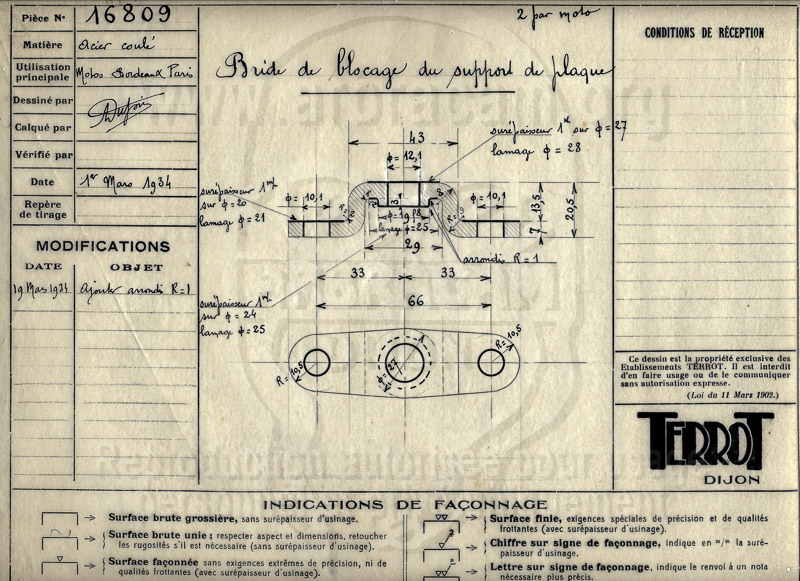 Pièce N° 16809
2 par moto
CONDITIONS DE RÉCEPTION
Matière acier coulé
Utilisation
principale Motos Bordeaux Paris
Bride de blocage du support de plaque
Dessiné par
Calqué par
Vérifié par
Date 1er Mars 1934
Repère
de tirage
MODIFICATIONS
DATE OBJET
19 Mars 1934 Ajouter arrondi R=1
surépaisseur 1mm sur ϕ=27
lamage ϕ=28
43
ϕ=12,1
surépaisseur 1mm
sur ϕ=20
lamage ϕ=21
ϕ=10,1
ϕ=10,1
13,5
20,5
7
lamage ϕ=25
29
arrondis R=1
33 33
66
surépaisseur 1mm
sur ϕ=24
lamage ϕ=25
R=10,5
R=10,5
ϕ=27
Ce dessin est la propriété exclusive des
Etablissements TERROT. Il est interdit
d'en faire usage ou de le communiquer
sans autorisation expresse.
(Loi du 11 Mars 1902.)
TERROT
DIJON
INDICATIONS DE FAÇONNAGE
Surface brute grossière, sans surépaisseur d'usinage.
Surface brute unie; respecter aspect et dimensions, retoucher
les rugosités s'il est nécessaire (sans surépaisseur d'usinage).
Surface façonnée sans exigences extrêmes de précision, ni de
qualités frottantes (avec surépaisseur d'usinage).
Surface finie, exigences spéciales de précision et de qualités
frottantes (avec surépaisseur d'usinage).
Chiffre sur signe de façonnage, indique en m/m la suré-
paisseur d'usinage.
Lettre sur signe de façonnage, indique le renvoi à un nota
nécessaire plus précis.